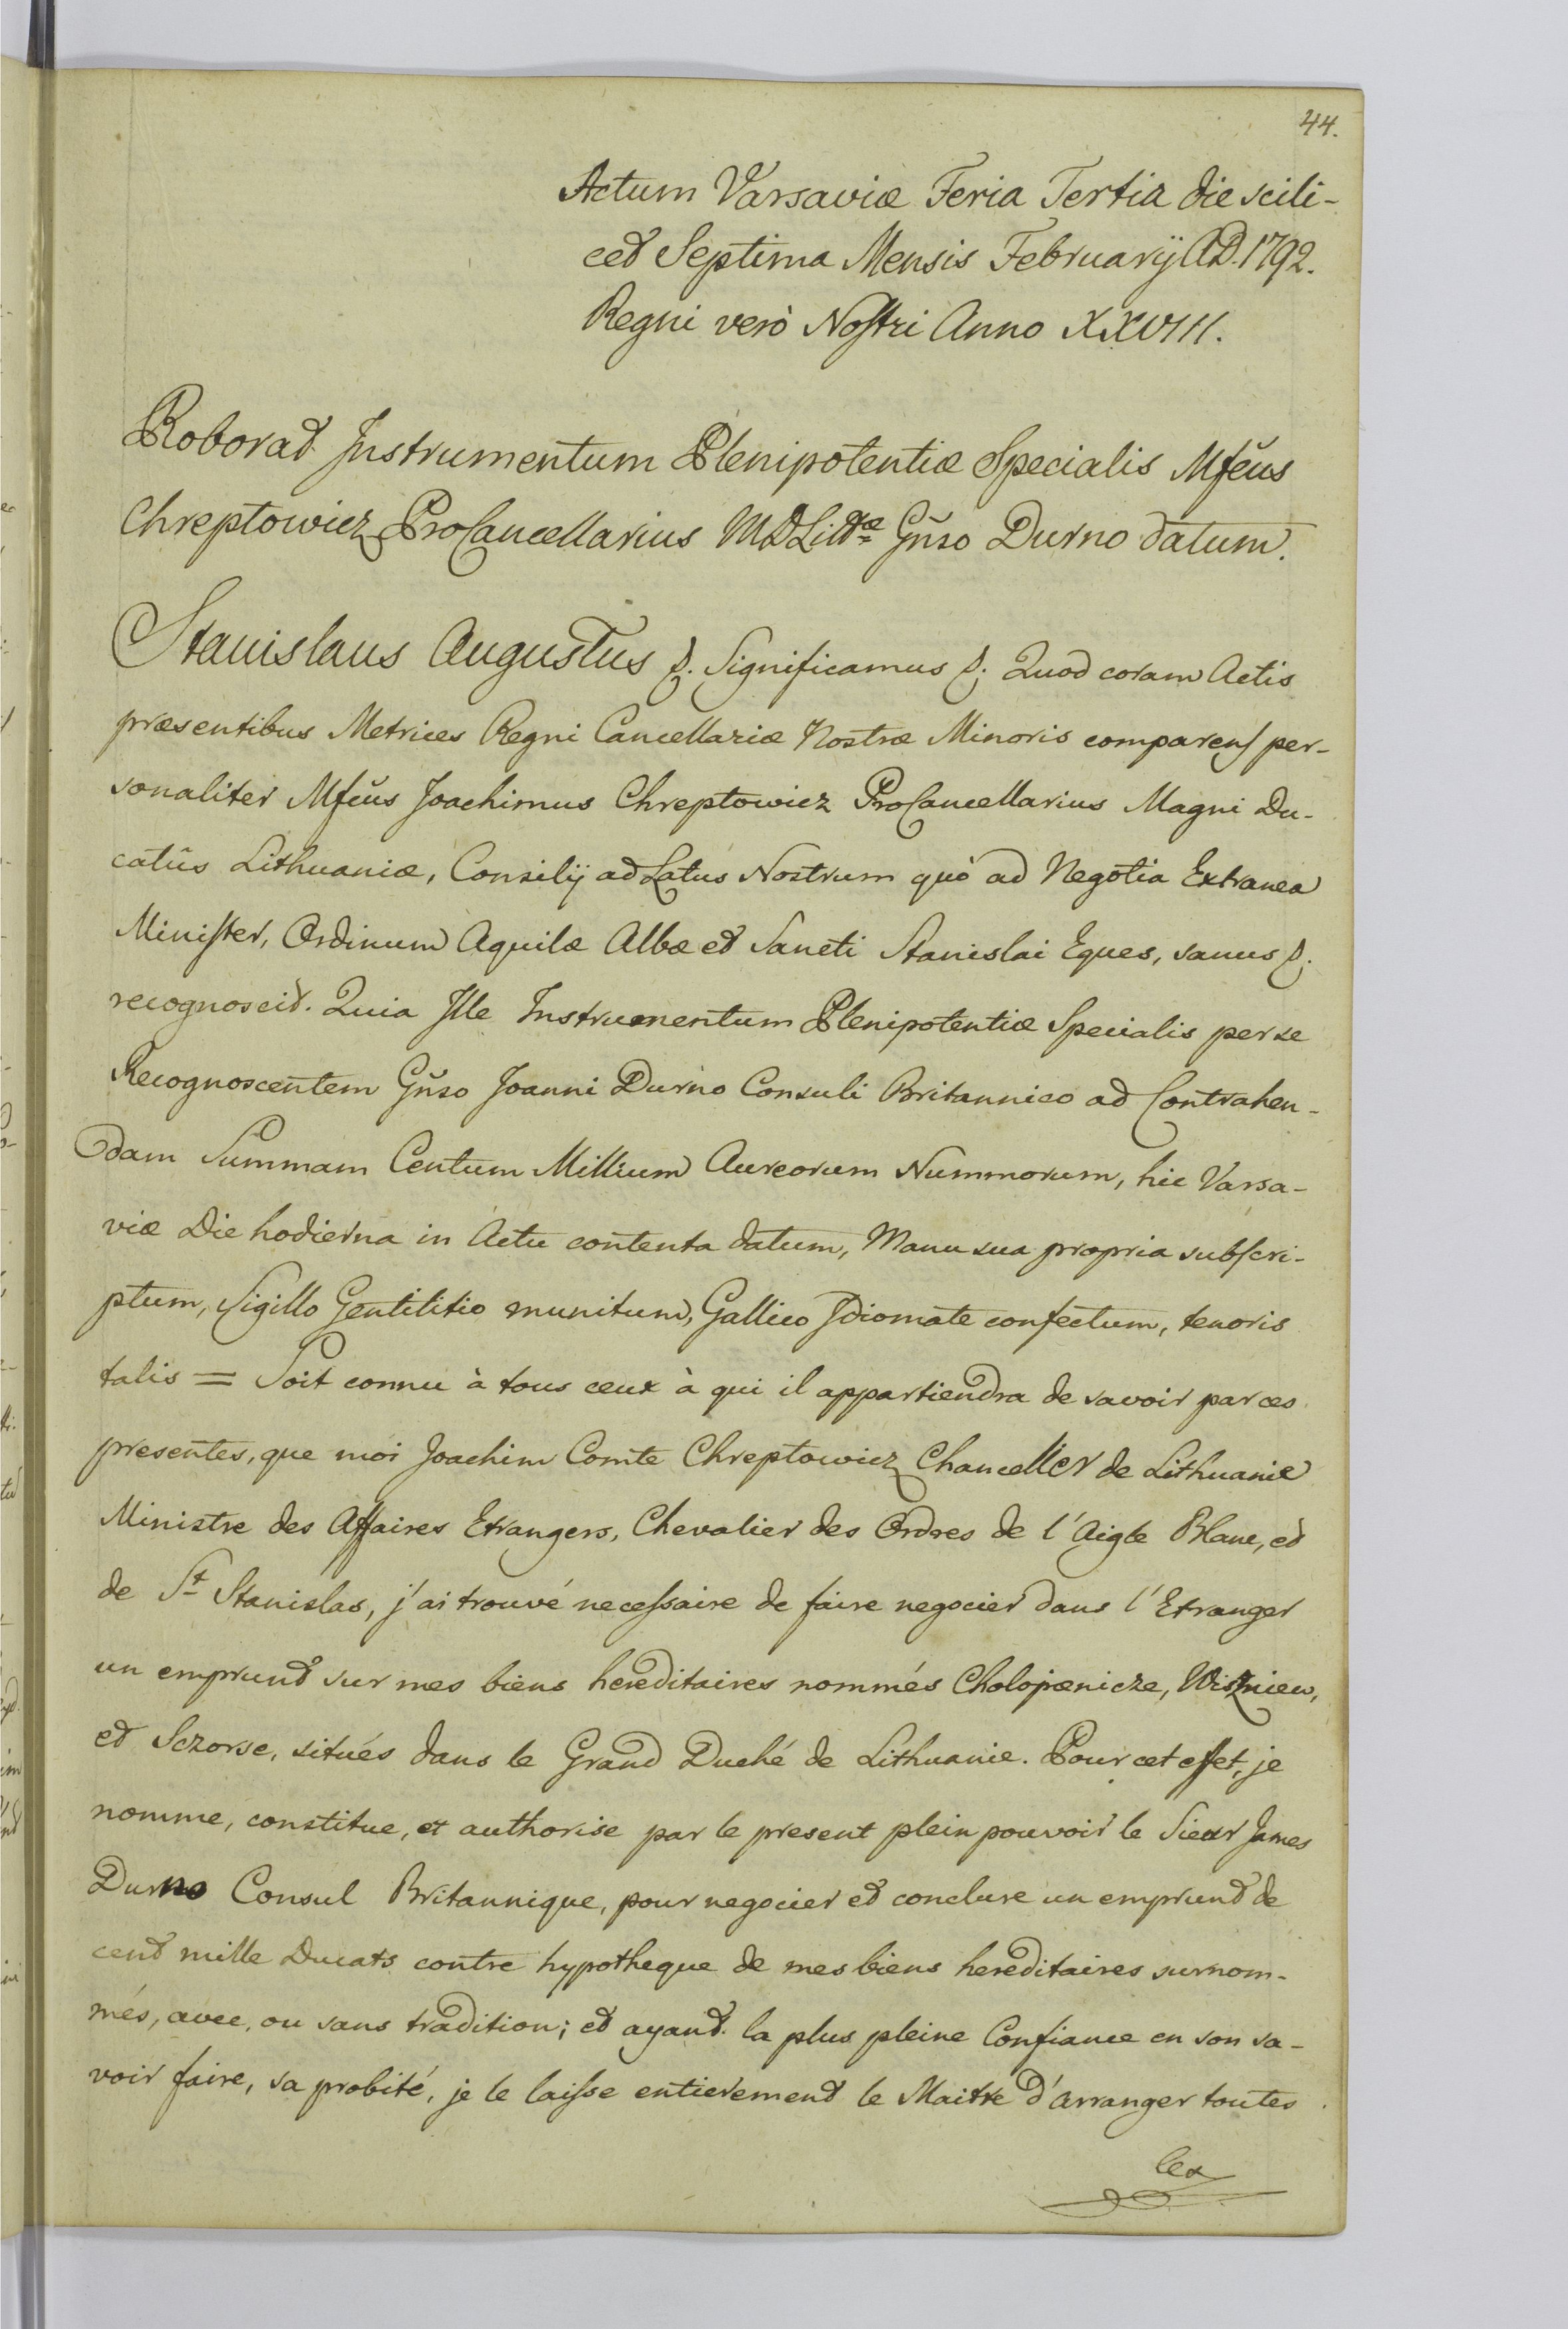 44.
Actum Varsaviæ Feria Tertia die scili-
cet Septima Mensis Februarÿ AD. 1792.
Regni verò Nostri Anno XXVIII.
Roborat Instrumentum Plenipotentiæ Specialis Mfcus
Chreptowicz ProCancellarius MDLittæ Gñso Durno datum.
Stanislaus Augustus &. Significamus &. Quod coram Actis
præsentibus Metrices Regni Cancellariæ Nostræ Minoris comparens per-
sonaliter Mfcus Joachimus Chreptowicz ProCancellarius Magni Du-
catûs Lithuaniæ, Consilÿ ad Latus Nostrum quò ad Negotia Extranea
Minister, Ordinum Aquilæ Albæ et Sancti Stanislai Eques, sanus &.
recognoscit. Quia Ille Instrumentum Plenipotentiæ Specialis per se
Recognoscentem Gñso Joanni Durno Consuli Britannico ad Contrahen-
dam Summam Centum Millium Aureorum Nummorum, hic Varsa-
viæ Die hodierna in Actu contenta datum, Manu sua propria subscri-
ptum, Sigillo Gentilitio munitum, Gallico Idiomate confectum, tenoris
talis = Soit connu à tous ceux à qui il appartiendra de savoir par ces
presentes, que moi Joachim Comte Chreptowicz Chancelier de Lithuanie
Ministre des Affaires Etrangers, Chevalier des Ordres de l'Aigle Blanc, et
de St Stanislas, j'ai trouvé necessaire de faire negocier dans l'Etranger
un emprunt sur mes biens hereditaires nommés Cholopænicze, Wiszniew,
et Sczorse, situés dans le Grand Duché de Lithuanie. Pour cet effet, je
nomme, constitue, et authorise par le present plein pouvoir le Sieur James
Durno Consul Britannique, pour negocier et conclure un emprunt de
cent mille Ducats contre hypotheque de mes biens hereditaires surnom-
més, avec, ou sans tradition; et ayant la plus pleine Confiance en son sa-
voir faire, sa probité, je le laisse entierement le Maitre d'arranger toutes
les